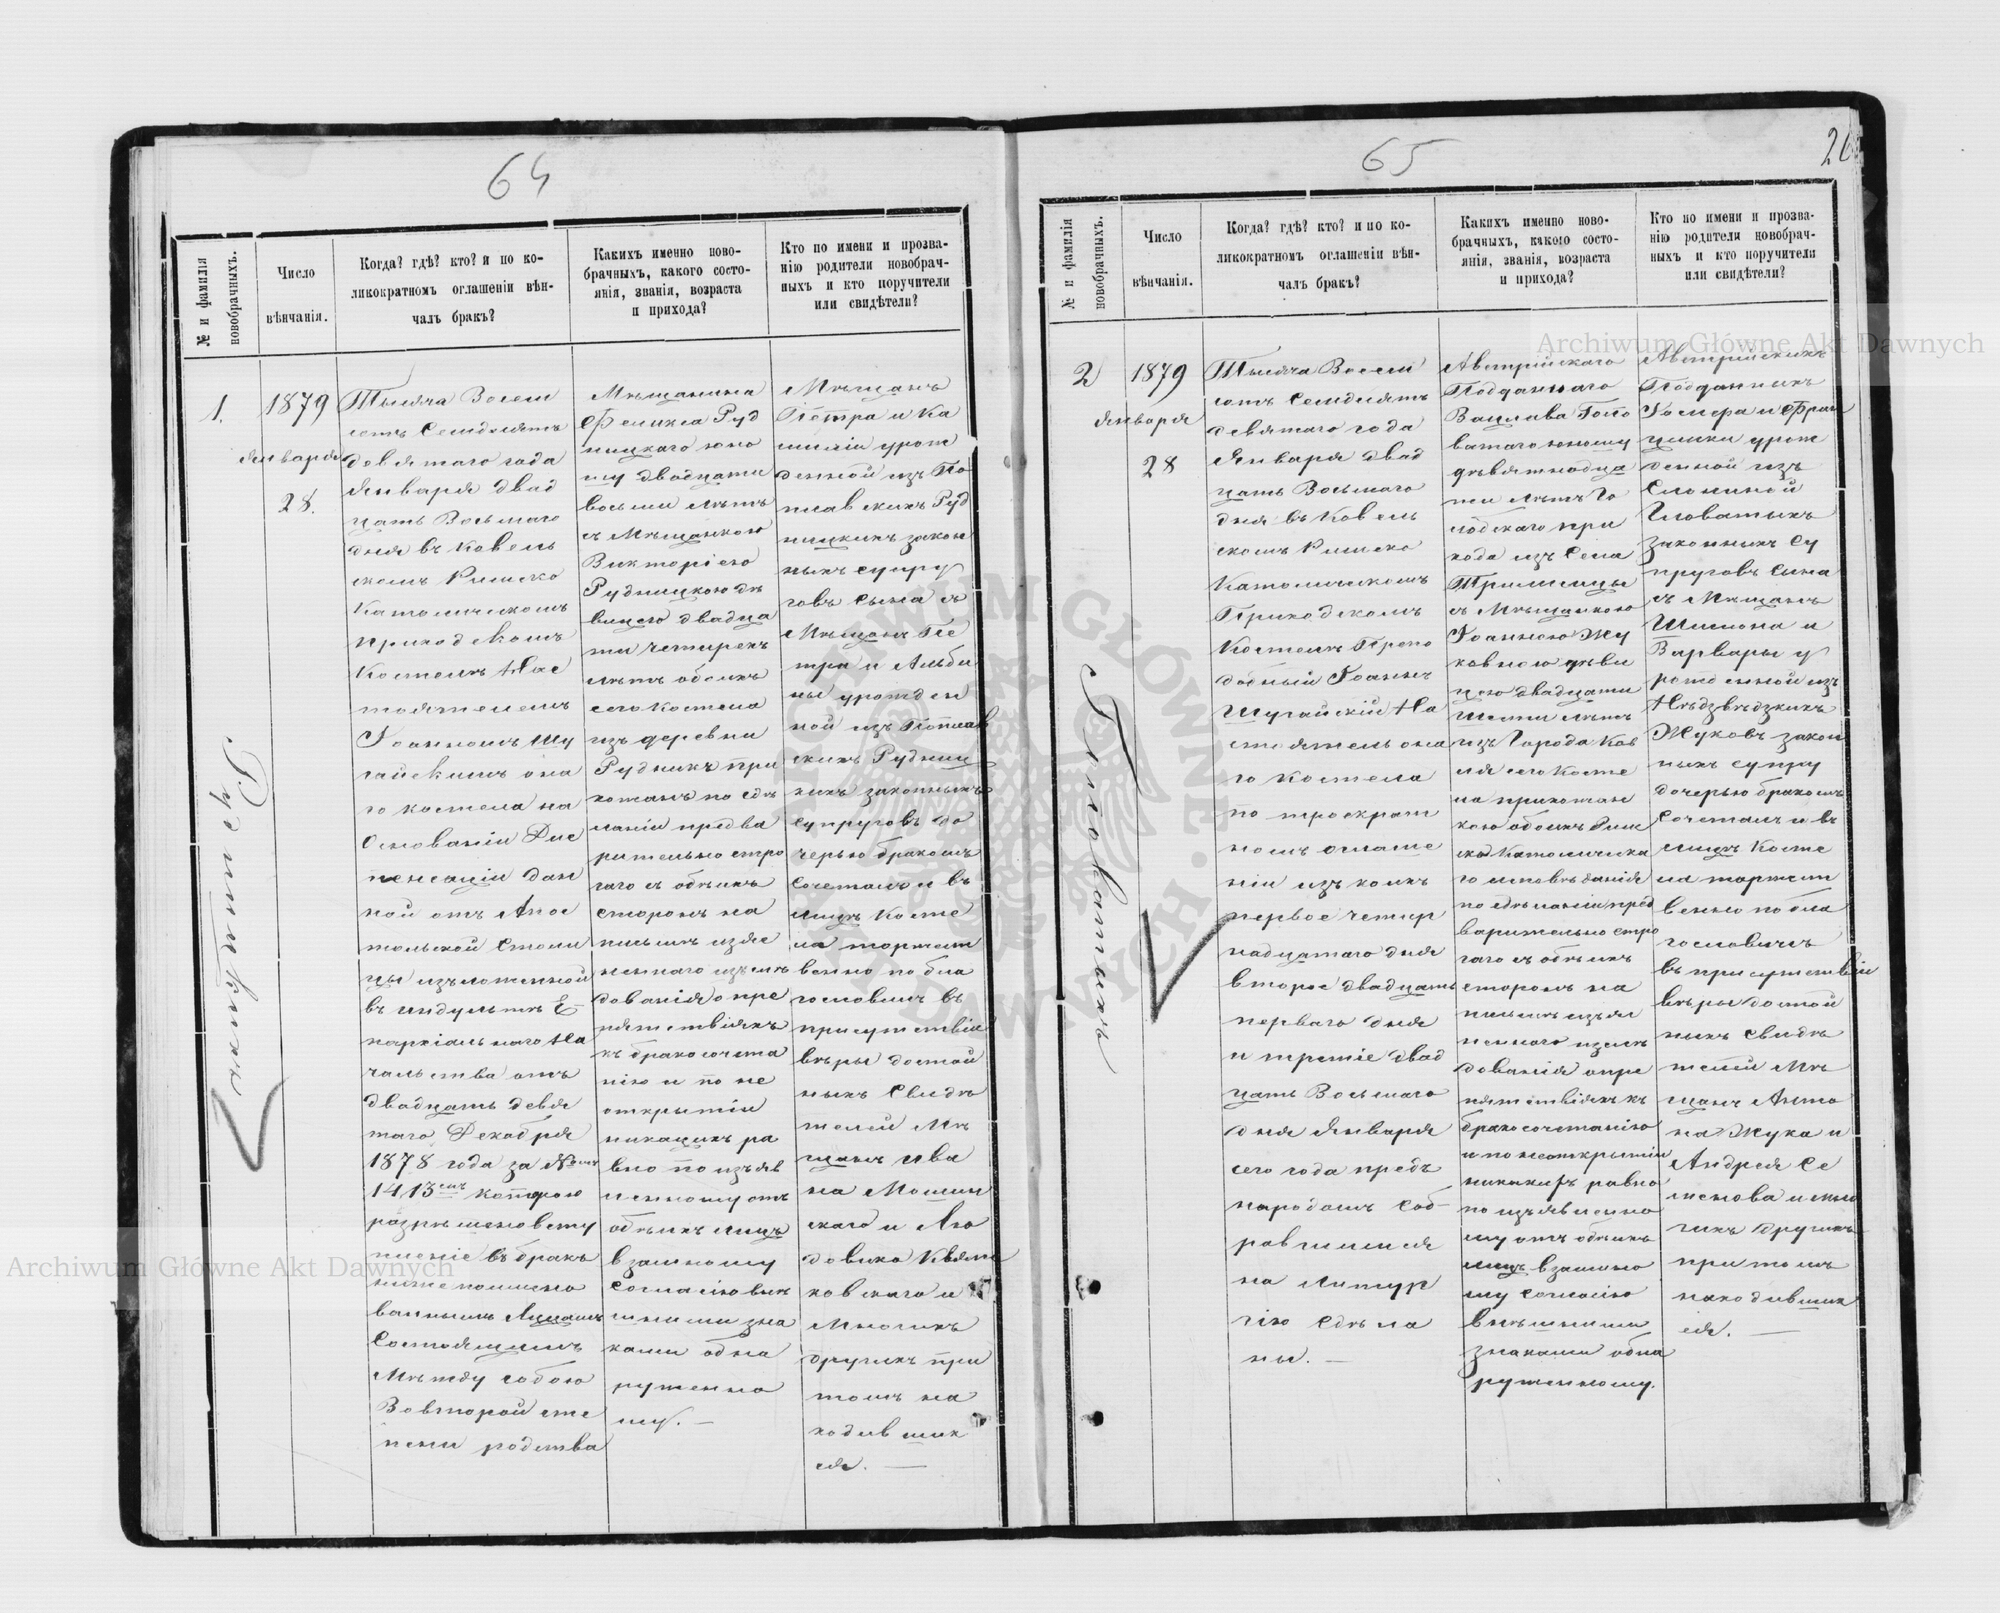 64
№ и фамилія
новобрачныхъ.
Число
вѣнчанія.
Когда? гдѣ? кто? и по ко-
ликократномъ оглашеніи вѣн-
чалъ бракъ?
Каких именно ново-
брачныхъ, какого состо-
янія, званія, возраста
и прихода?
Кто по имени и прозва-
нію родители новобрач-
ныхъ и кто поручители
или свидѣтели?
1.
1879
января
28.
Тысяча Восем
сотъ Семдесятъ
девятаго года
Января двад
цать Восьмаго
дня въ Ковель
скомъ Римско
Католическомъ
приходскомъ
Костелѣ Нас
тоятелемъ
Іоанномъ Шу
гайскимъ она
го костела на
Основаніи Дис
пенсаціи дан
ной отъ Апос
тольской Столи
цы изъложенной
въ индультѣ Е
пархіальнаго На
чальства отъ
двадцать девя
таго Декабря
1878 года за №мъ
1413емъ которою
разрѣшено всту
пленіе въ бракъ
нижепоимено
ваннымъ Лицамъ
Состоящимъ
Между собою
Вовторой сте
пени родства
Мѣщанина
Феликса Руд
ницкаго юно
шу двадцати
восьми лѣтъ
съ Мѣщанкою
Викторіею
Рудницкою дѣ
вицею двадца
ти четырехъ
лѣтъ обоихъ
сего костела
изъ деревни
Рудникъ при
хожанъ по сдѣ
ланіи предва
рительно стро
гаго съ обѣихъ
сторонъ на
письмѣ изяс
неннаго изслѣ
дованія о пре
пятствіяхъ
къ бракосочета
нію и по не
открытіи
никакихъ ра
вно по изъяв
ленному отъ
обѣихъ лицъ
взаимному
Согласію внѣ
шними зна
ками обна
руженно
му. —
Мѣщанъ
Петра и Ка
миліи урож
денной изъ По
плавскихъ Руд
ницкихъ закон
ныхъ супру
говъ сына съ
Мѣщанъ Пе
тра и Альби
ны урожден
ной изъ Поплав
скихъ Рудниц
кихъ законныхъ
Супруговъ до
черью бракомъ
Сочеталъ и въ
лицѣ Косте
ла торжест
венно побла
гословилъ въ
присутствіи
вѣры достой
ныхъ Свидѣ
телей Мѣ
щанъ Ива
на Мошин
скаго и Лю
довика Квятк
ковскаго и
Многихъ
другихъ при
томъ на
ходивших
ся. —
65
26
№ и фамилія
новобрачныхъ.
Число
вѣнчанія.
Когда? гдѣ? кто? и по ко-
ликократномъ оглашеніи вѣн-
чалъ бракъ?
Каких именно ново-
брачныхъ, какого состо-
янія, званія, возраста
и прихода?
Кто по имени и прозва-
нію родители новобрач-
ныхъ и кто поручители
или свидѣтели?
2
Головатыхъ
1879
января
28
Тысяча Восем
сотъ Семдесятъ
девятаго года
Января двад
цать Восьмаго
дня въ Ковель
скомъ Римско
Католическомъ
Приходскомъ
Костелѣ Препо
добный Іоаннъ
Шугайскій На
стоятель она
го Костела
по троекрат
номъ оглаше
ніи изъ коихъ
первое четыр
надцатаго дня
второе двадцать
перваго дня
и третіе двад
цать Восьмаго
дня Января
сего года предъ
народомъ Соб-
равшимся
на Литур
гію Сдѣла
ны. —
Австрійскаго
Подданнаго
Вацлава Голо
ватаго юношу
девятнадца
ти лѣтъ
прихода изъ Села
съ Мѣщанкою
Іоанною Жу
ковною дѣви
цею двадцати
Шести лѣтъ
изъ Города Ков
ля сего Косте
ла прихожан
кою обоихъ Рим
ско Католическа
го исповѣданія
по сдѣланіи пред
варительно стро
гаго съ обѣихъ
сторонъ на
письмѣ изъяс
неннаго изслѣ
дованія опре
пятствіяхъ къ
бракосочетанію
и по неоткрытіи
никакихъ равно
по изъявленно
му отъ обѣихъ
лицъ взаимно
му Согласію
внѣшними
знаками обна
руженному.
Австрійскихъ
Подданныхъ
Іосифа и Фран
цишки урож
денной изъ
Головатыхъ
законныхъ Су
пруговъ Сына
съ Мѣщанъ
Шимона и
Варвары у
рожденной изъ
Нѣдзвѣдзкихъ
Жуковъ закон
ныхъ супру
дочерью бракомъ
Сочеталъ и въ
лицѣ Косте
ла торжест
венно побла
гословилъ
въ присутствіи
вѣры достой
ныхъ Свидѣ
телей Мѣ
щанъ Анто
на Жука и
Андрея Се
менова и мно
гихъ другихъ
притомъ
находивших
ся. —
Archiwum Główne Akt Dawnych
Archiwum Główne Akt Dawnych
ARCHIWUM GŁÓWNE AKT DAWNYCH